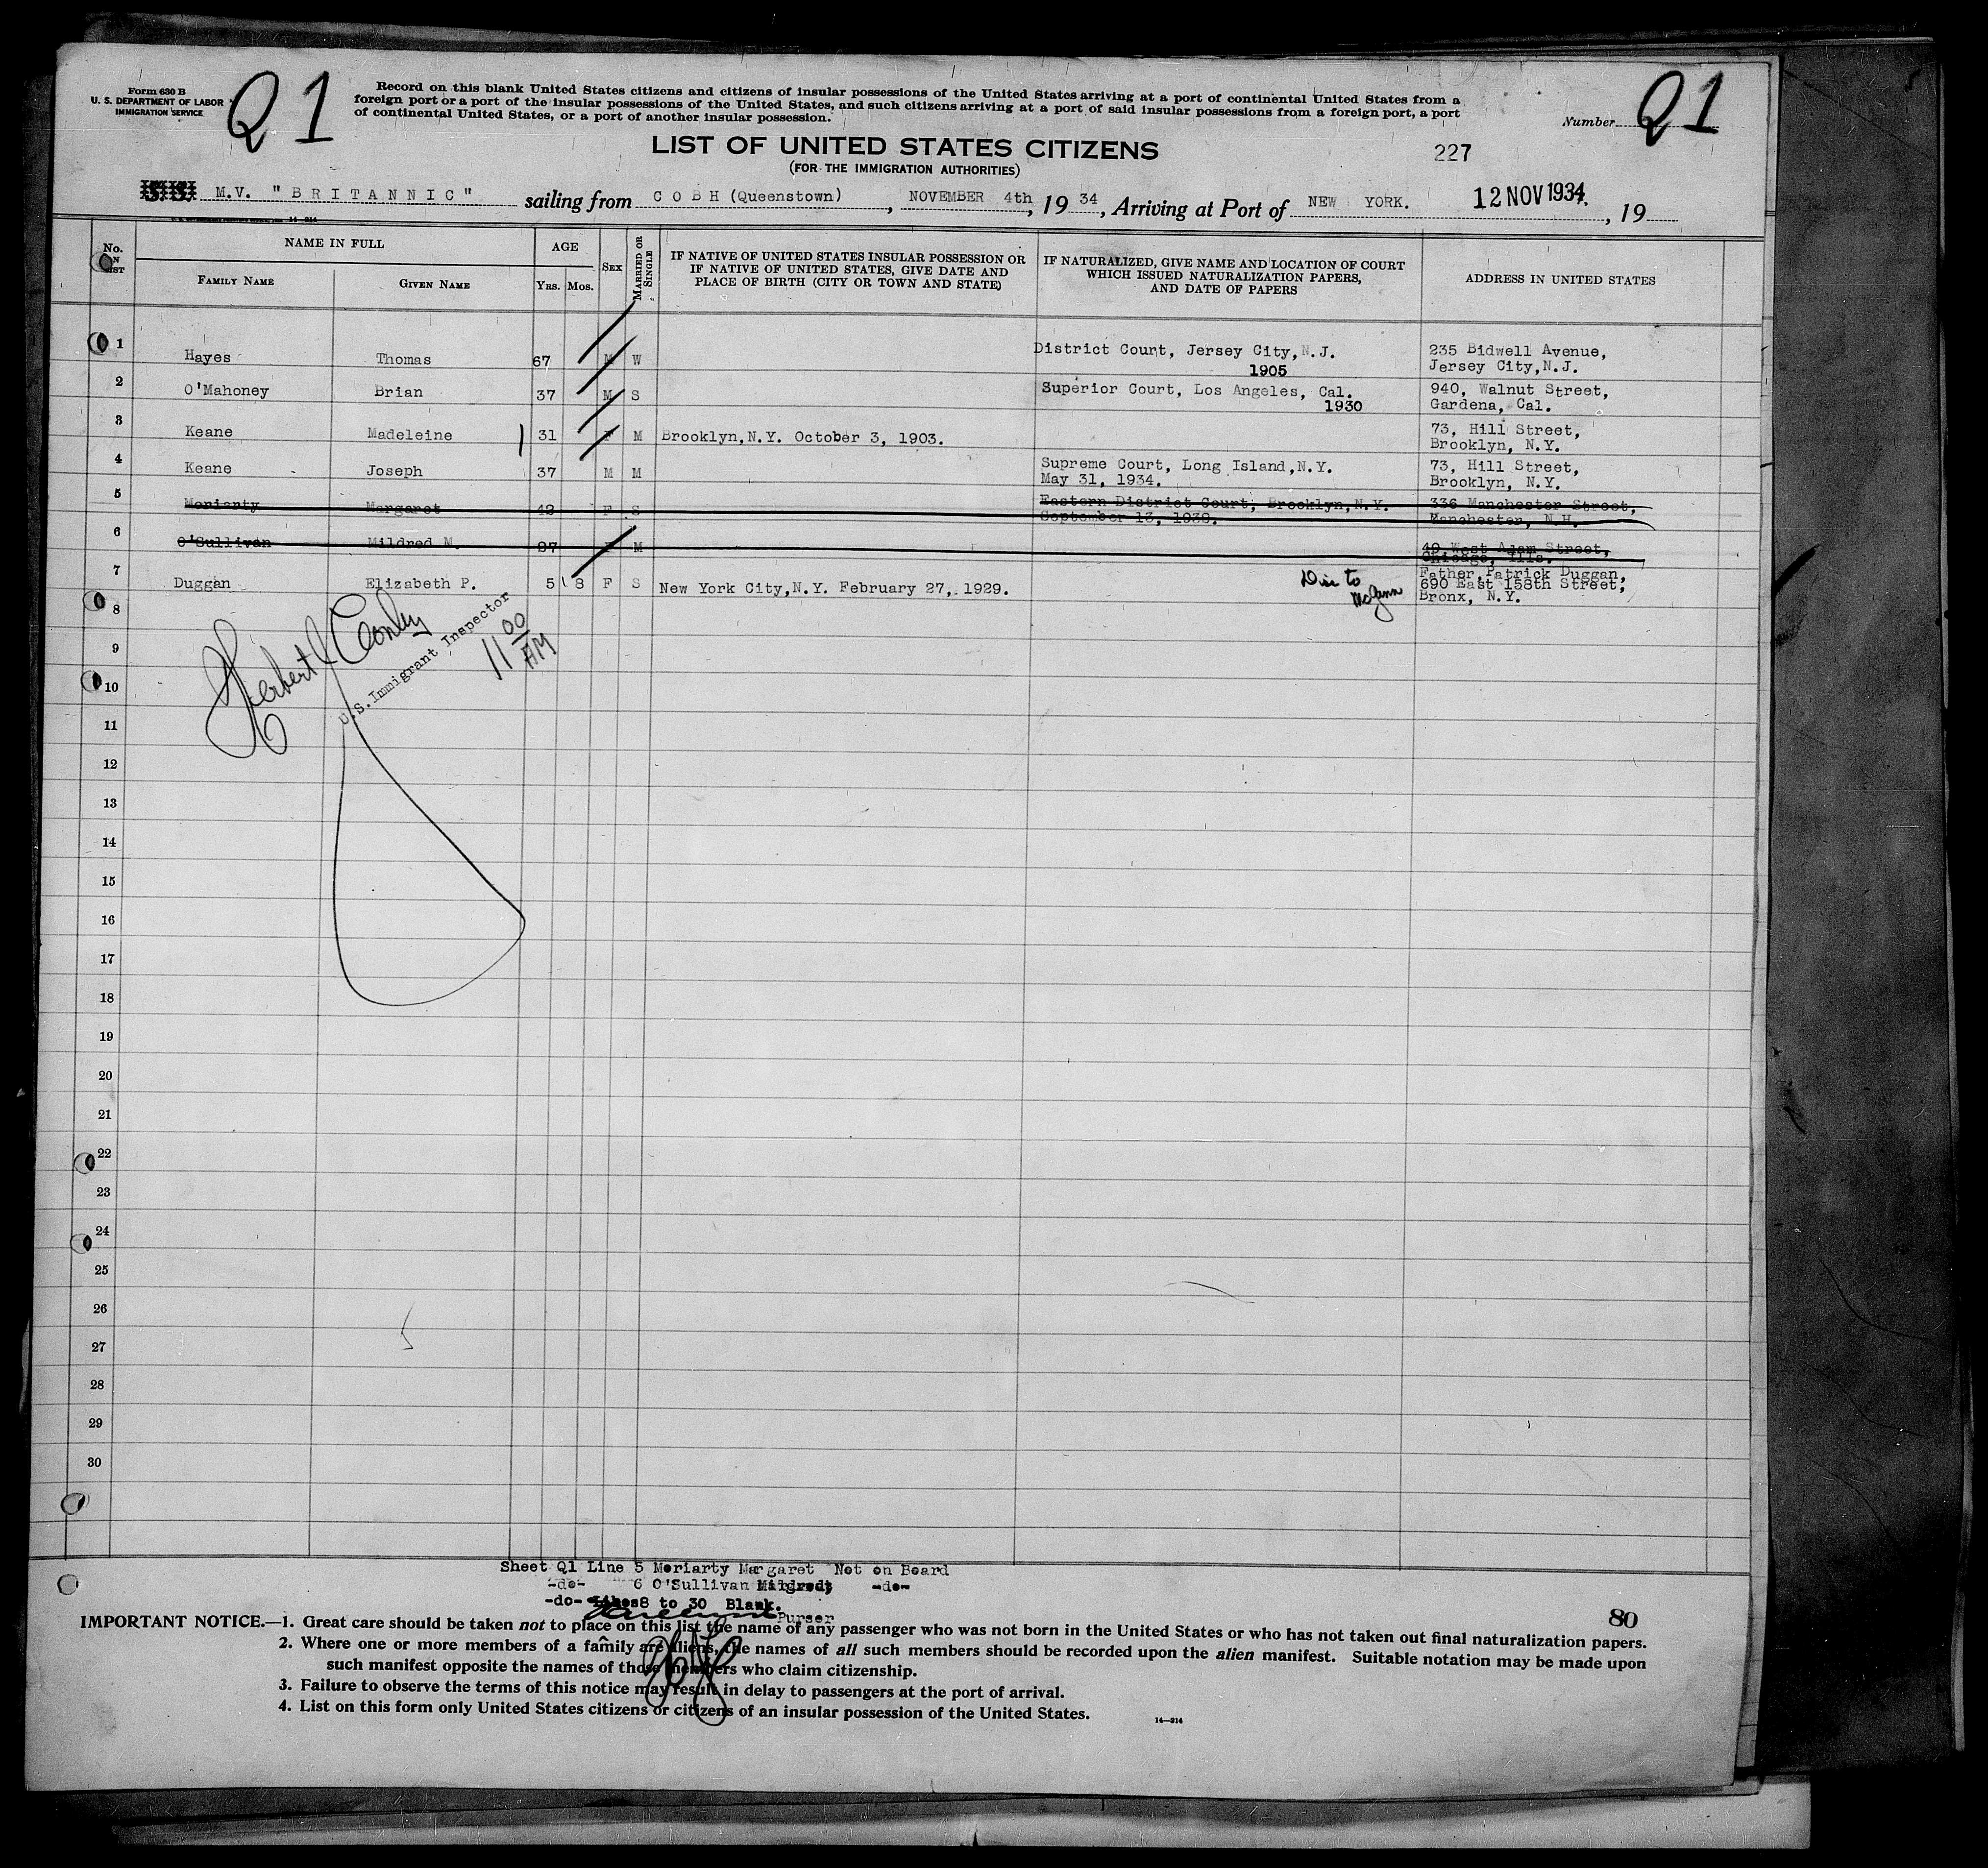 Form 630 B
U. S. DEPARTMENT OF LABOR
IMMIGRATION SERVICE
Q1
Record on this blank United States citizens and citizens of insular possessions of the United States arriving at a port of continental United States from a
foreign port or a port of the insular possessions of the United States, and such citizens arriving at a port of said insular possessions from a foreign port, a port
of continental United States, or a port of another insular possession.
Number Q1
LIST OF UNITED STATES CITIZENS
(FOR THE IMMIGRATION AUTHORITIES)
227
S.S. M.V. "BRITANNIC" sailing from COBH (Queenstown), NOVEMBER 4th, 1934, Arriving at Port of NEW YORK. 12 NOV 1934, 19
No. ON LIST
NAME IN FULL
FAMILY NAME GIVEN NAME
AGE
YRS. MOS.
SEX
MARRIED OR SINGLE
IF NATIVE OF UNITED STATES INSULAR POSSESSION OR
IF NATIVE OF UNITED STATES, GIVE DATE AND
PLACE OF BIRTH (CITY OR TOWN AND STATE)
IF NATURALIZED, GIVE NAME AND LOCATION OF COURT
WHICH ISSUED NATURALIZATION PAPERS,
AND DATE OF PAPERS
ADDRESS IN UNITED STATES
1 Hayes Thomas 67 M W District Court, Jersey City, N.J. 235 Bidwell Avenue,
1905 Jersey City, N.J.
2 O'Mahoney Brian 37 M S Superior Court, Los Angeles, Cal. 940, Walnut Street,
1930 Gardena, Cal.
3 Keane Madeleine 31 F M Brooklyn, N.Y. October 3, 1903. 73, Hill Street,
Brooklyn, N.Y.
4 Keane Joseph 37 M M Supreme Court, Long Island, N.Y. 73, Hill Street,
May 31, 1934. Brooklyn, N.Y.
5 Moriarty Margaret F S Eastern District Court, Brooklyn, N.Y. 336 Manchester Street,
September 13, Manchester, N.H.
6 O'Sullivan Mildred M. M West Adam Street,
Chicago, Ills.
7 Duggan Elizabeth P. 5 8 F S New York City, N.Y. February 27, 1929. Father, Patrick Duggan,
690 East 158th Street,
Bronx, N.Y.
8
9
10
11
12
13
14
15
16
17
18
19
20
21
22
23
24
25
26
27
28
29
30
U.S. Immigrant Inspector
11 00 AM
Sheet Q1 Line 5 Moriarty Margaret Not on Board
-do- 6 O'Sullivan Mildred -do-
-do- Lines 8 to 30 Blank.
Purser
80
IMPORTANT NOTICE.—1. Great care should be taken not to place on this list the name of any passenger who was not born in the United States or who has not taken out final naturalization papers.
2. Where one or more members of a family are aliens, the names of all such members should be recorded upon the alien manifest. Suitable notation may be made upon
such manifest opposite the names of those members who claim citizenship.
3. Failure to observe the terms of this notice may result in delay to passengers at the port of arrival.
4. List on this form only United States citizens or citizens of an insular possession of the United States.
14—914